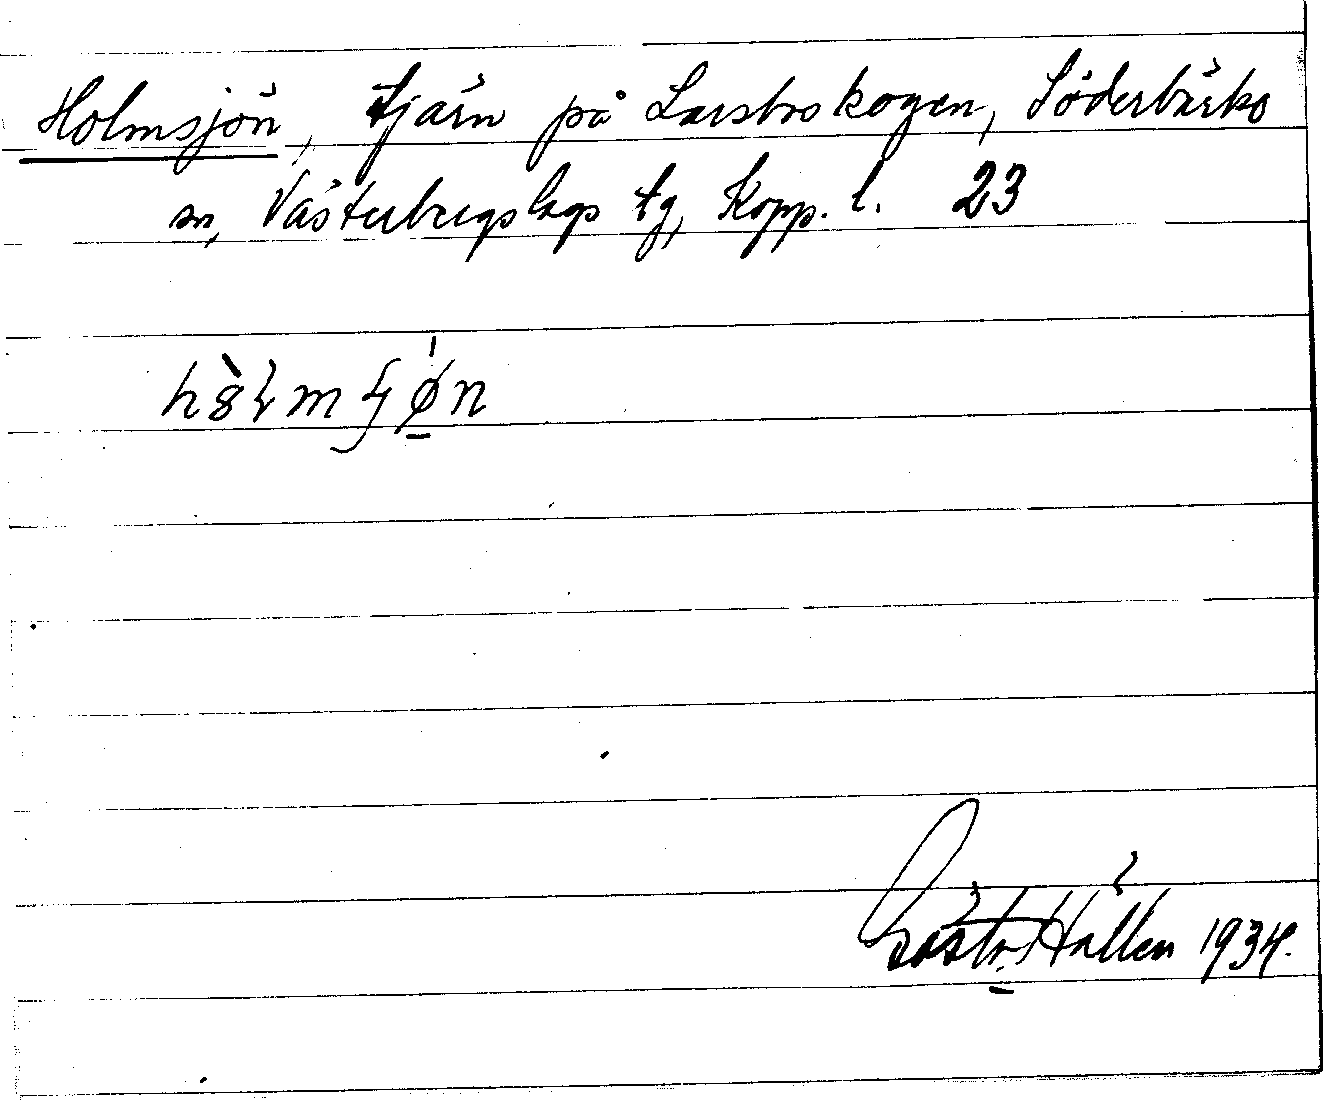 Holmsjön, tjärn på Larsboskogen, Söderbärke
sn, Västerbergslags tg, Kopp. l. 23
Hållén 1934.